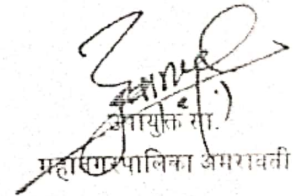 आयुक्त सा.
महानगरपालिका अमरावती